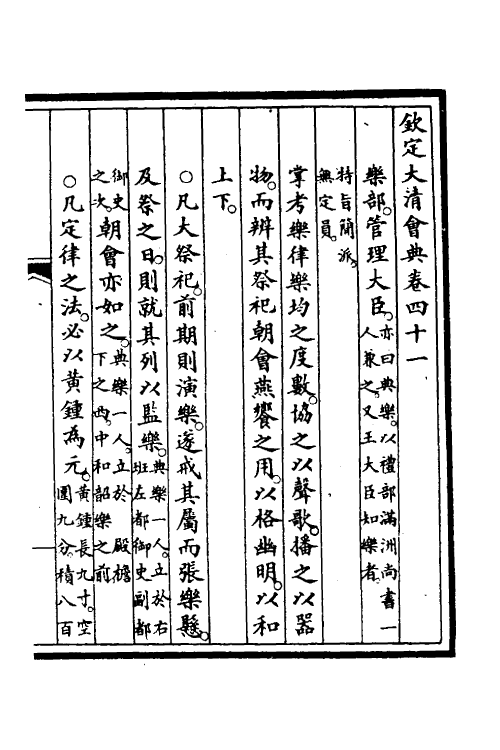 欽定大清會典卷四十一
樂部。管理大臣。亦曰典樂。以禮部滿洲尚書一人兼之。又王大臣知樂者。
特旨簡派。無定員。
掌考樂律樂均之度數。協之以聲歌。播之以器
物。而辨其祭祀朝會燕饗之用。以格幽明。以和
上下。
○凡大祭祀。前期則演樂。遂戒其屬而張樂懸。
及祭之日。則就其列以監樂。典樂一人。立於右班左都御史副都
御史之次。朝會亦如之。典樂一人。立於殿檐下之西。中和韶樂之前
○凡定律之法。必以黃鍾為元。黃鍾長九寸。空圍九分。積八百